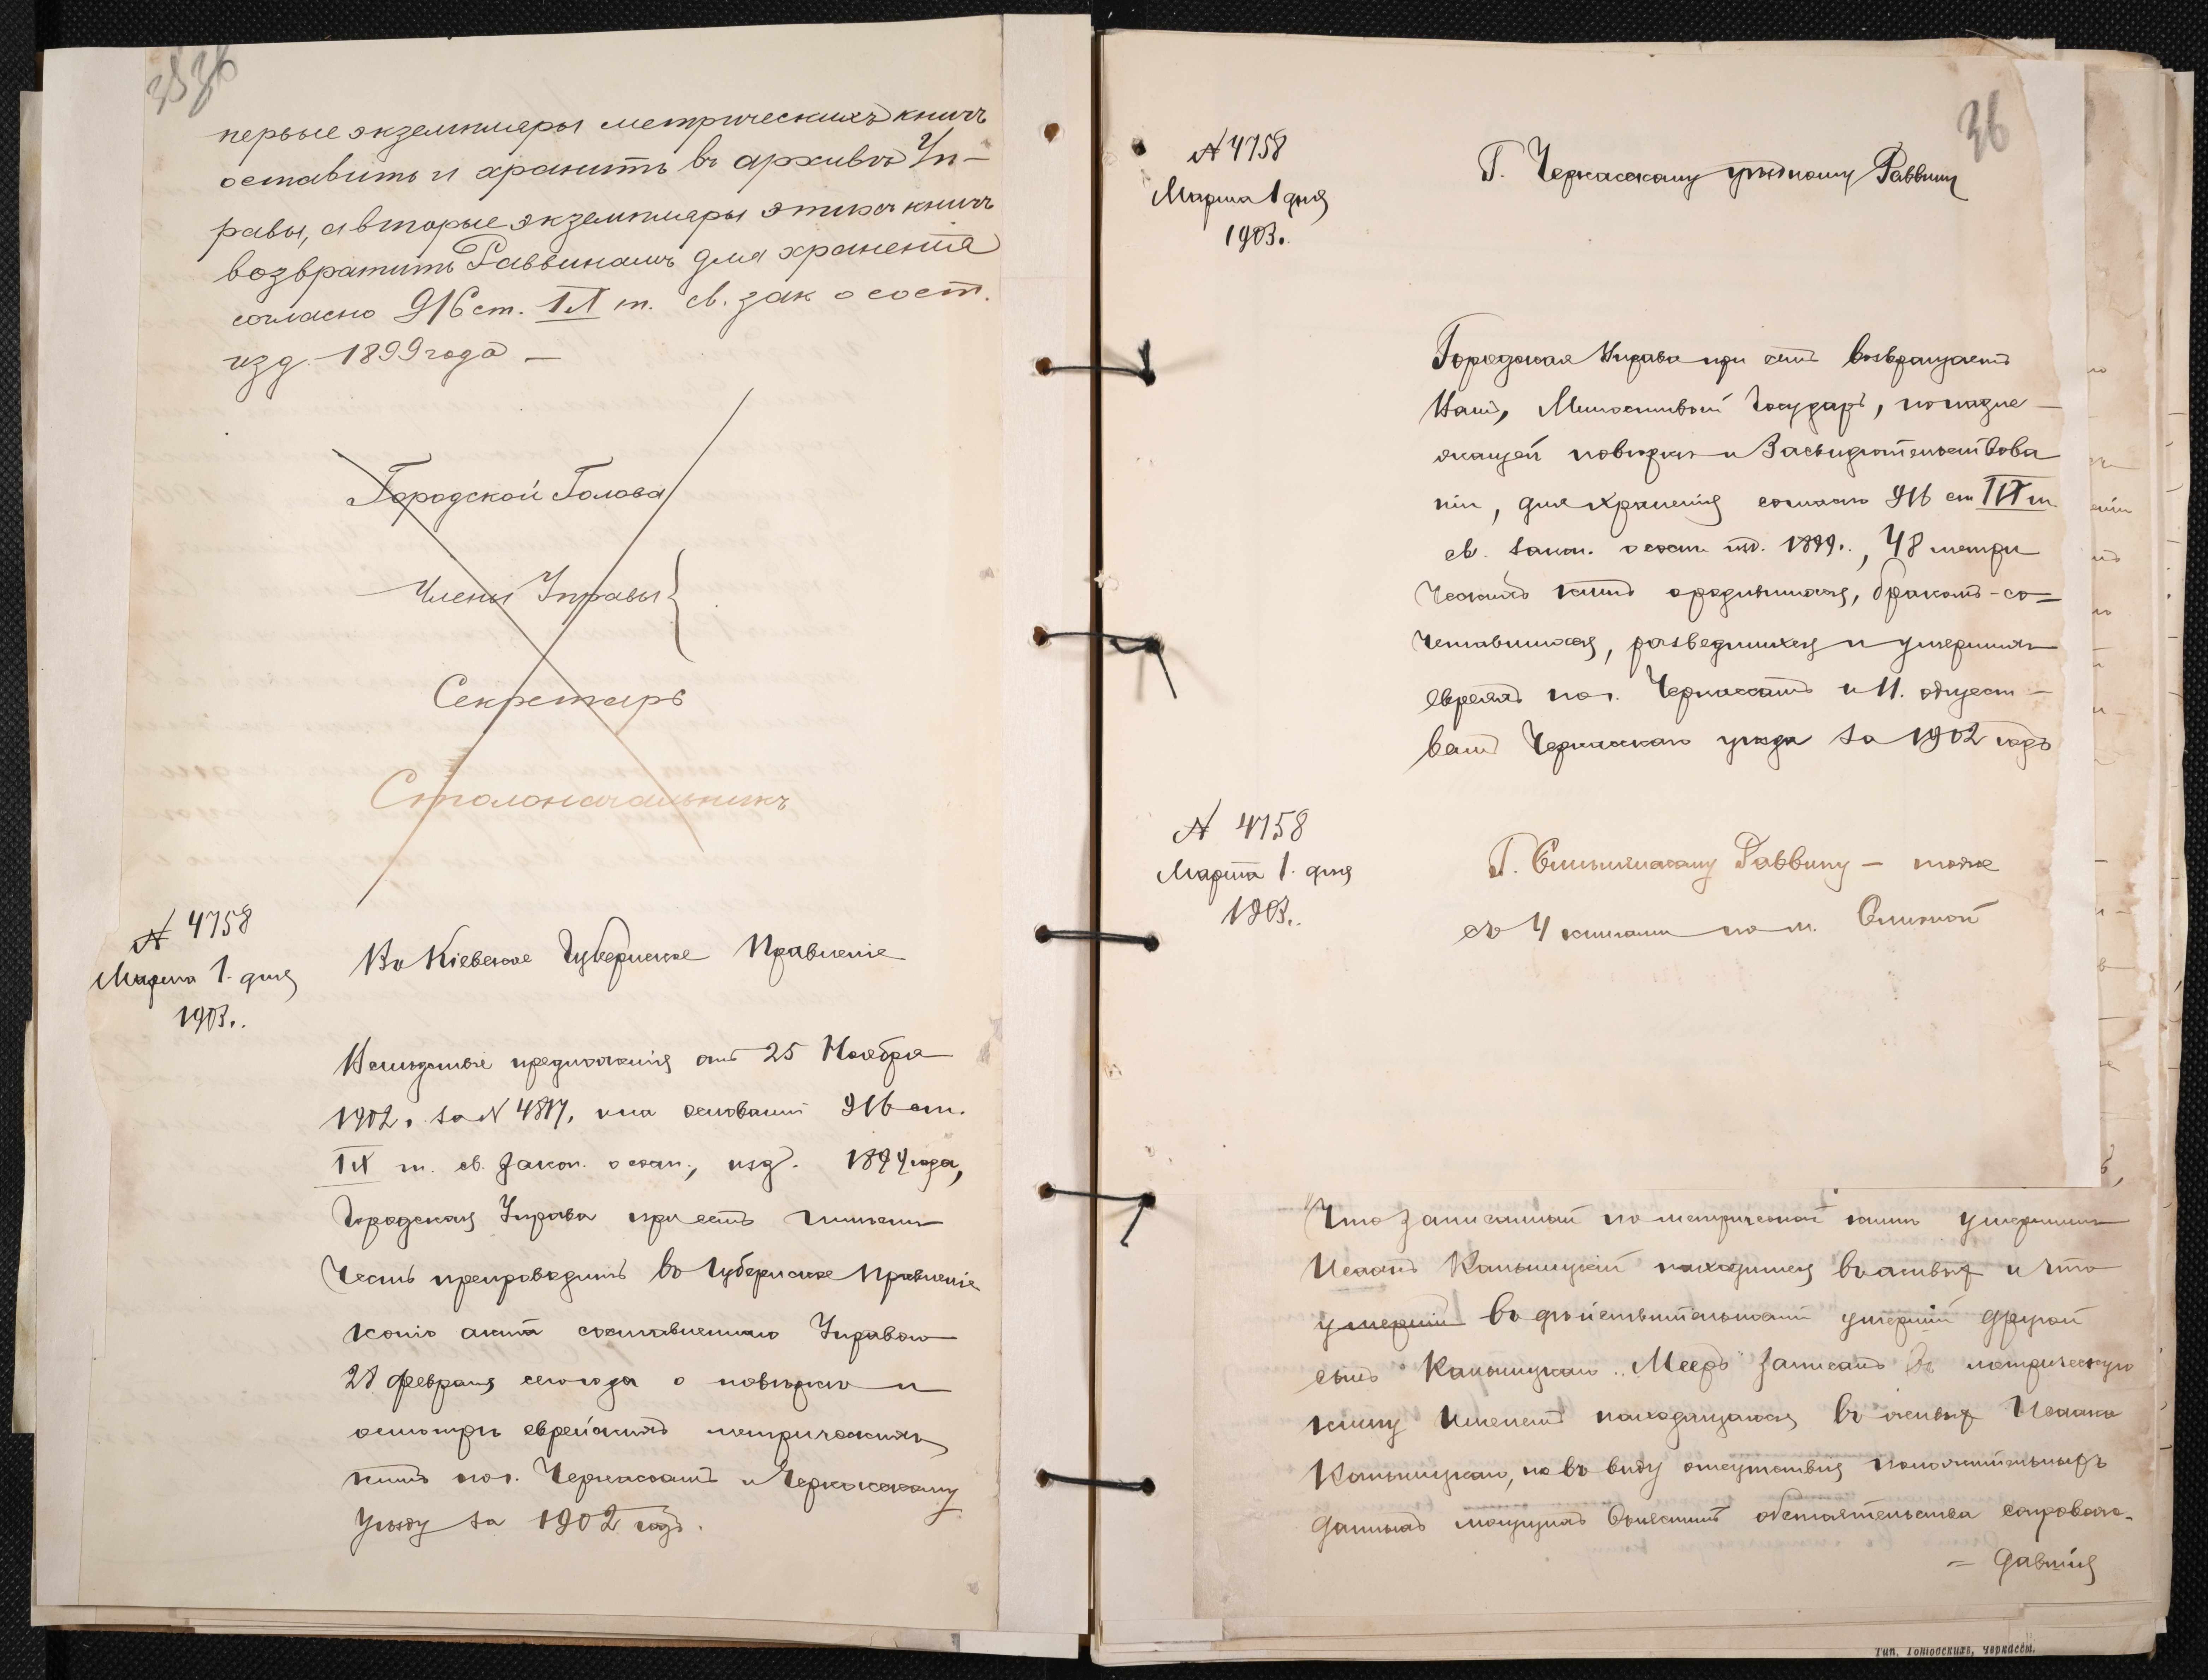 35 36
первые экземпляры метрическихъ книгъ
оставить и хранить въ архивѣ Уп-
равы, а вторые экземпляры этихъ книгъ
возвратить Раввинамъ для хранения
согласно 916 ст. IX т. св. зак о сост.
изд. 1899 года —
Городской Голова
Члены Управы
Секретарь
Столоначальникъ
№ 4758
Марта 1. дня
1903.
Въ Кіевское Губернское Правленіе
Вслѣдствіе предложенія отъ 25 Ноября
1902 г. за № 4817, и на основаніи 916 ст.
IX т. св. закон. о сост., изд. 1899 года,
Городская Управа при семъ имѣетъ
честь препроводить въ Губернское Правленіе
копію акта составленнаго Управою
28 февраля сего года о повѣркѣ и
осмотрѣ еврейскихъ метрическихъ
книгъ по г. Черкассамъ и Черкасскому
уѣзду за 1902 годъ.
36
№ 4758
Марта 1 дня
1903.
Г. Черкасскому уѣздному Раввину
Городская Управа при семъ возвращаетъ
Вамъ, Милостивый Государь, по надле-
жащей повѣркѣ и Засвидѣтельствова
ніи, для храненія согласно 916 ст IX т.
св. закон. о сост. изд. 1899 г., 48 метри
ческихъ книгъ о родившихся, бракомъ-со=
четавшихся, разведшихся и умершихъ
евреяхъ по г. Черкассамъ и 11. общест-
вамъ Черкасскаго уѣзда за 1902 годъ
№ 4758
Марта 1. дня
1903.
Г. Смѣлянскому Раввину — тоже
съ 4 книгами по м.
Что записанный по метрической книгѣ умершимъ
Исаакъ Каныщукій находится въ живыхъ и что
умершій въ дѣйствительности умершій другой
сынъ Мееръ записанъ въ метрическую
книгу именемъ находящагося въ живыхъ Исаака
но въ виду отсутствія положительныхъ
данныхъ могущихъ обстоятельства сопровож-
= давшія
Тип. Городскихъ, Черкассы.